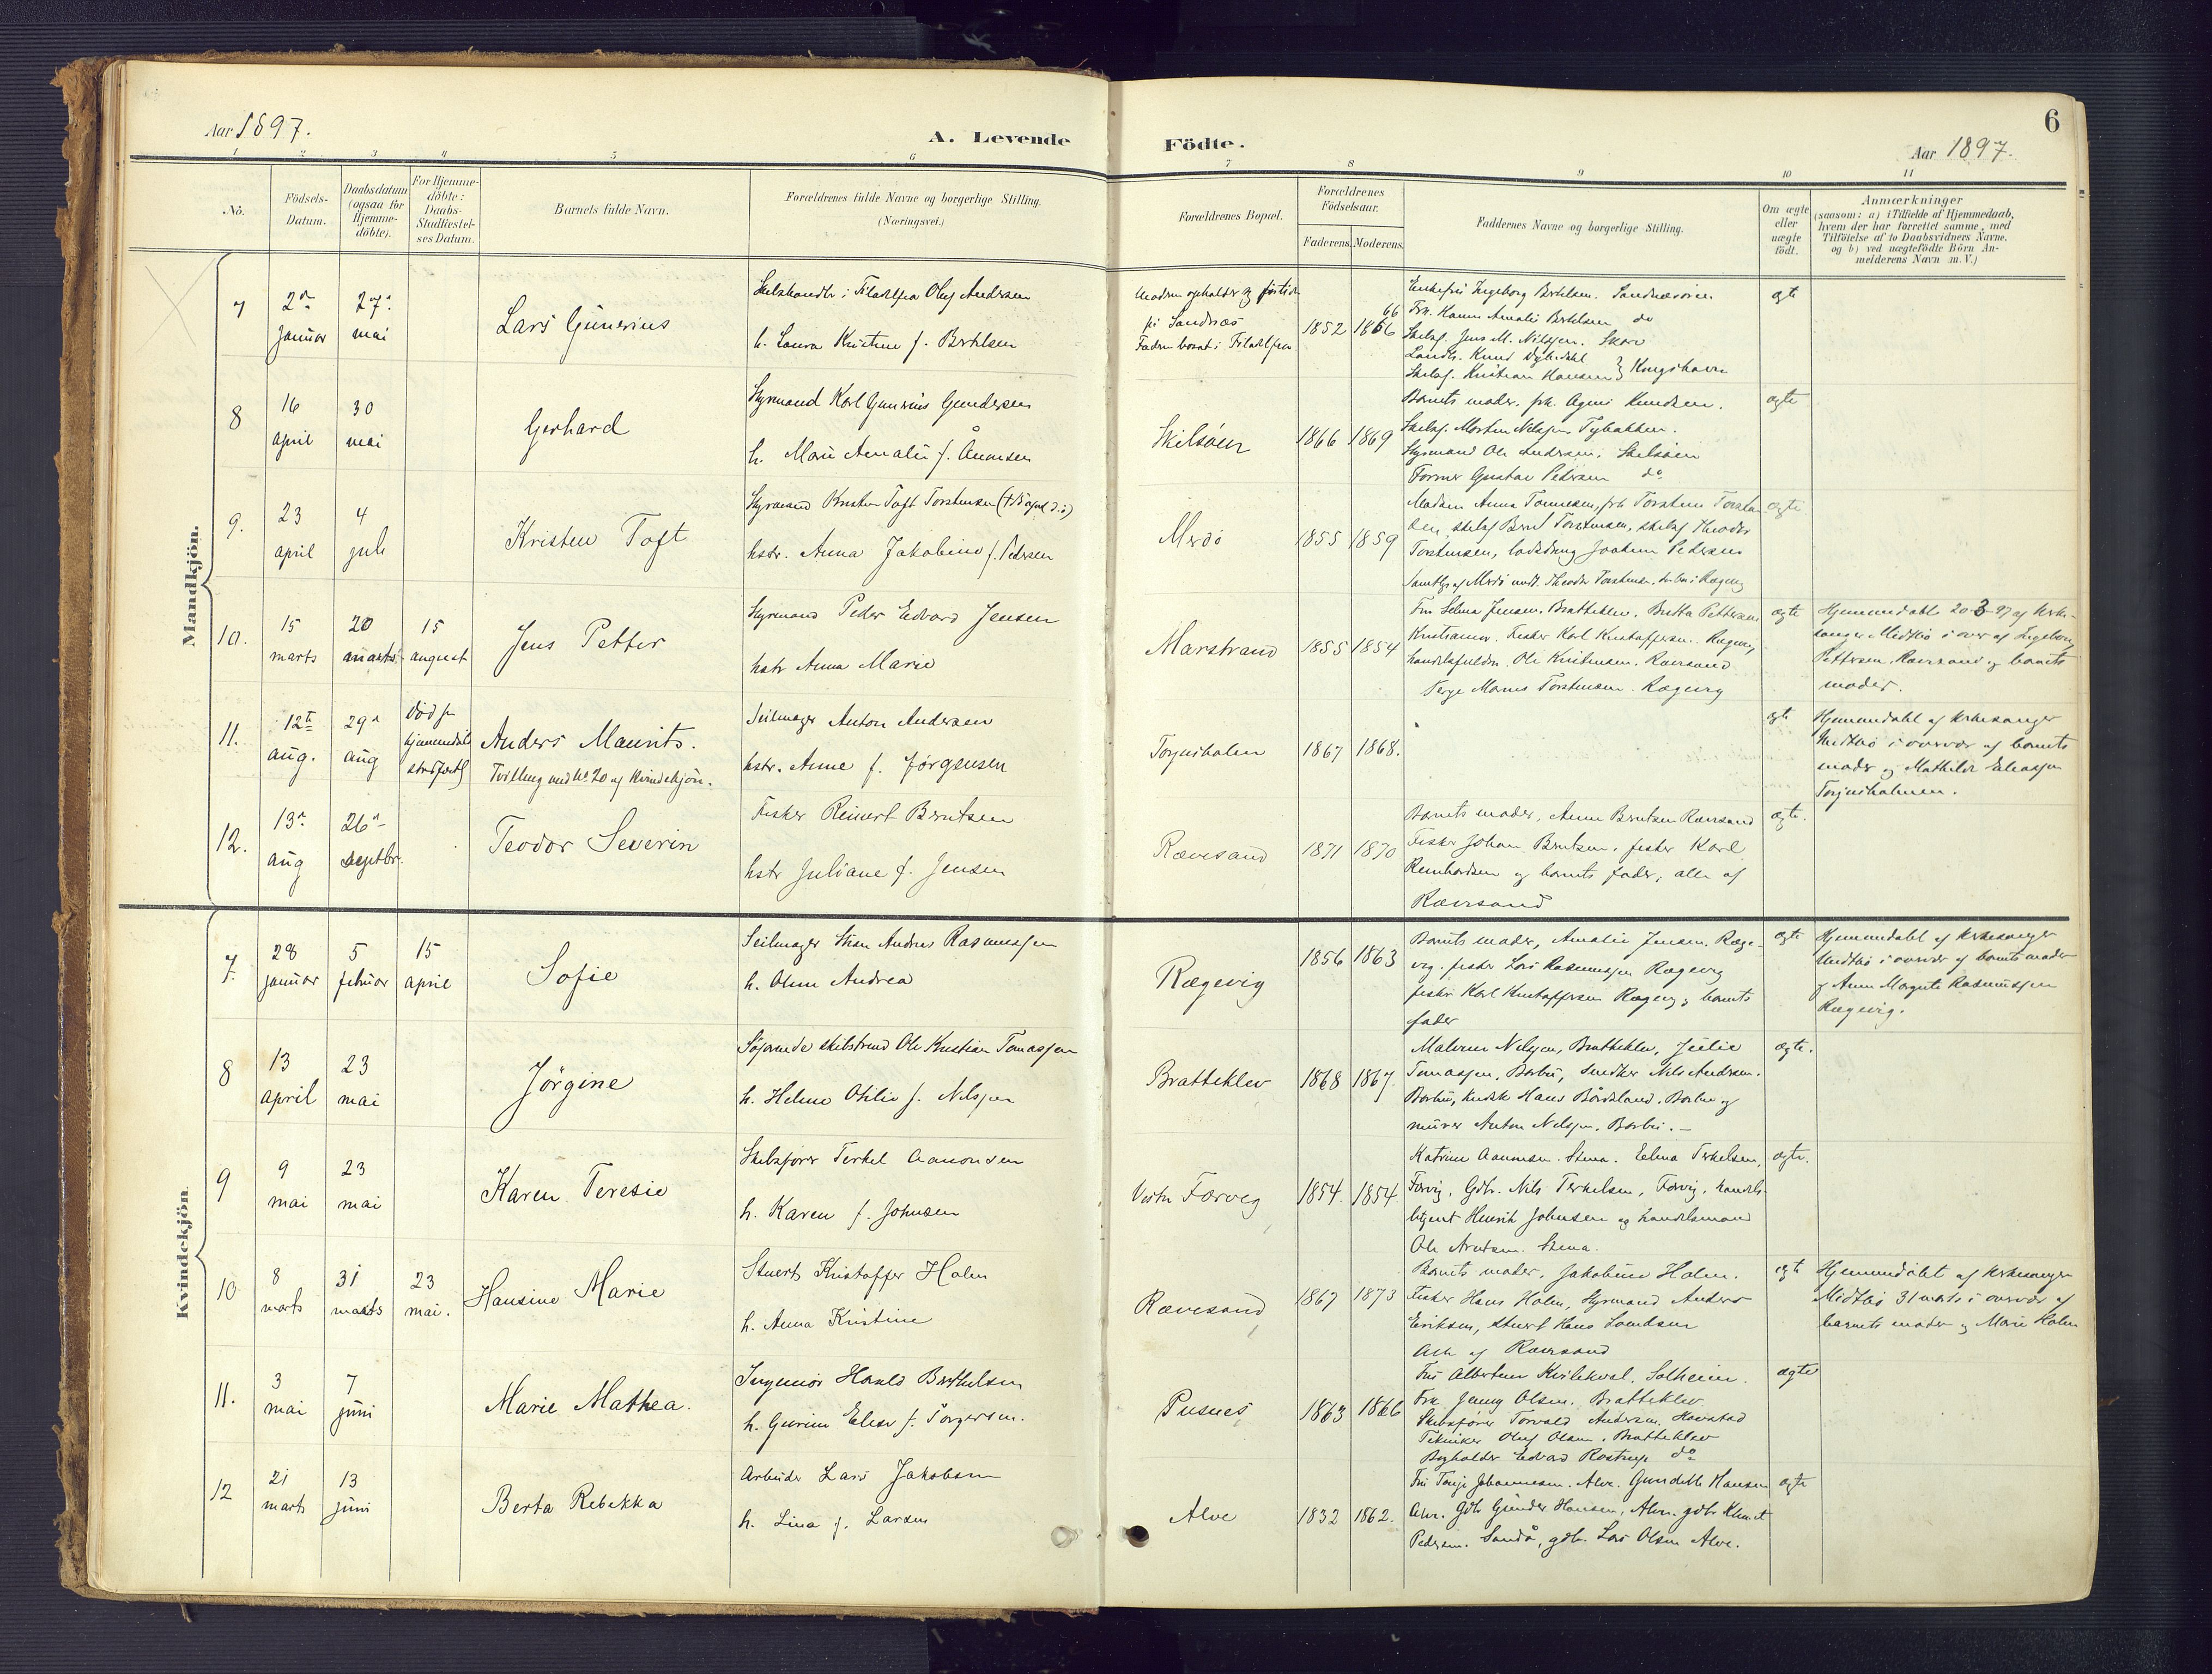 Aar 1897.
A. Levende
Födte.
Aar 1897.
6
1 2 3 4 5 6 7 8 9 10 11
No.
Födsels-
Datum.
Daabsdatum
(ogsaa for
Hjemme-
döbte).
For Hjemme-
döbte:
Daabs-
Stadfæstel-
ses Datum.
Barnets fulde Navn.
Forældrenes fulde Navne og borgerlige Stilling.
(Næringsvei.)
Forældrenes Bopæl.
Forældrenes
Födselsaar.
Faderens. Moderens.
Faddernes Navne og borgerlige Stilling.
Om ægte
eller
uægte
födt.
Anmærkninger
(saasom: a) i Tilfælde af Hjemmedaab,
hvem der har forrettet samme, med
Tilföielse af to Daabsvidners Navne,
og b) ved uægtefödte Börn An-
melderens Navn m. V.)
Mandkjön.
7
2den
januar
27de
mai
Lars Gunerius
i Filadelfia Oluf Andersen
h. Laura Kristine f. Bertelsen
Madren opholder sig
på Sandnæs
Fadren boent i Filadelfia
1852
66
1866
Ingeborg Bertelsen. Sandnæs
Frk. Hanna Amalie Bertelsen do
Skibsf. Jens M. Nilssen.
Knud Dybedal
Skibsf. Kristian Hansen } Kongshavn
ægte
8
16
april
30
mai
Gerhard
Styrmand Karl Gunerius Gundersen
h. Marie Amalie f. Aanonsen
Skilsöen
1866
1869
Barnets moder, frk. Agnes Knudsen.
Skibsf. Morten Nilssen Tybakken.
Styrmand Ole Andersen, Skilsöen
Former Gustav Pedersen do
ægte
9.
23
april
4
juli
Kristen Toft
Styrmand Kristen Toft Torstensen
hstr. Anna Jakobine f. Pedersen
Merdö
1855
1859
Madam Anna Tonnesen, frk Torstine Torsten-
sen, skibsf Bernt Torstensen, skibsf Theodor
Torstensen, Joakim Pedersen
Samtlige af Merdö undt. Theodor Torstensen,
ægte
10.
15
marts
20
marts
15
august
Jens Petter
Styrmand Peder Edvard Jensen
hstr Anna Marie
Marstrand
1855
1854
Fru Selma Jensen, Bratteklev, Betta Pettersen
Fisker Karl Kristoffersen. Rægevig,
Ole Kristensen. Rævesand
Terje Torstensen. Rægevig
ægte
Hjemmedöbt 20-3-97 af kirke-
sanger Midtbö i overv af Ingeborg
Pettersen, Rævesand og barnets
moder.
11.
12te
aug.
29de
aug
död
hjemmedaab
stadfæst
Anders Maurits.
Tvilling med No 20 af Kvindekjön.
Seilmager Anton Andersen
hstr. Anne f. Jörgensen
Torjusholmen
1867
1868.
ægte
Hjemmedöbt af kirkesanger
Midtbö i overvær af barnets
moder og Mathilde Eliassen
Torjusholmen.
12.
13de
aug
26de
septbr.
Teodor Severin
Fisker Reinert Berntsen
hstr Juliane f. Jensen
Rævesand
1871
1870
Barnets moder, Anne Berntsen Rævesand
Fisker Johan Berntsen, fisker Karl
Reinhardsen og barnets fader, alle af
Rævesand
ægte.
Kvindekjön
7.
28
januar
5
februar
15
april
Sofie
Seilmager Andreas Rasmussen
h. Andrea
Rægevig
1856
1863
Barnets moder, Amalie Jensen, Ræge-
vig. fisker Lars Rasmussen Rægevig
fisker Karl Kristoffersen Rægevig, barnets
fader
ægte
Hjemmedöbt af kirkesanger
Midtbö i overvær af barnets moder
og Anne Margrete Rasmussen
Rægevig.
8
13
april
23
mai
Jörgine
Söfarende skibstömd Ole Kristian Tomassen
h. Helene Otilie f. Nilssen
Bratteklev
1868
1867
Nilssen, Bratteklev, Julie
Tomassen, Barbu, snedker Nils Andersen.
Barbu, Hans Bårdsland, Barbu og
murer Anton Nilssen, Barbu.-
ægte.
9
9
mai
23
mai
Karen Teresie
Skibsförer Terkel Aanonsen
h. Karen f. Johnsen
Færvig
1854.
1854.
Katrine Aanonsen. Elena Terkelsen,
Færvig, Gdbr. Nils Terkelsen, Færvig, handels-
betjent Henrik Johnsen og handelsmand
Ole
ægte.
10
8
marts
31
marts
23
mai.
Hansine Marie
Stuert Kristoffer Holm
h. Anna Kristine
Rævesand
1867
1873
Barnets moder, Jakobine Holm.
Fisker Hans Holm, styrmand Anders
Eriksen, stuert Hans
Alle af Rævesand
ægte
Hjemmedöbt af kirkesanger
Midtbö 31 marts i overvær af
barnets moder og Marie Holm
11.
3
mai
7
juni
Marie Mathea.
Ingeniör Harald Berthelsen
h. Gurine Elise f. Torgersen.
Pusnes
1863
1866
Fru Albertine Kvilekval, Solheim.
Frk. Jenny Olsen, Bratteklev
Skibsförer Torvald Andersen,
Tekniker Oluf Olsen, Bratteklev
Bogholder Edvard Rostrup do
ægte
12
21
marts
13
juni
Berta Rebekka
Arbeider Lars Jakobsen
h. Lina f. Larsen
Alve
1832
1862.
Fru Johannesen. Alve. Hansen
Alve. Gdb Gunder Hansen, Alve. gdb Knut
Pedersen. Sandå, gdb. Lars Olsen Alve.
ægte